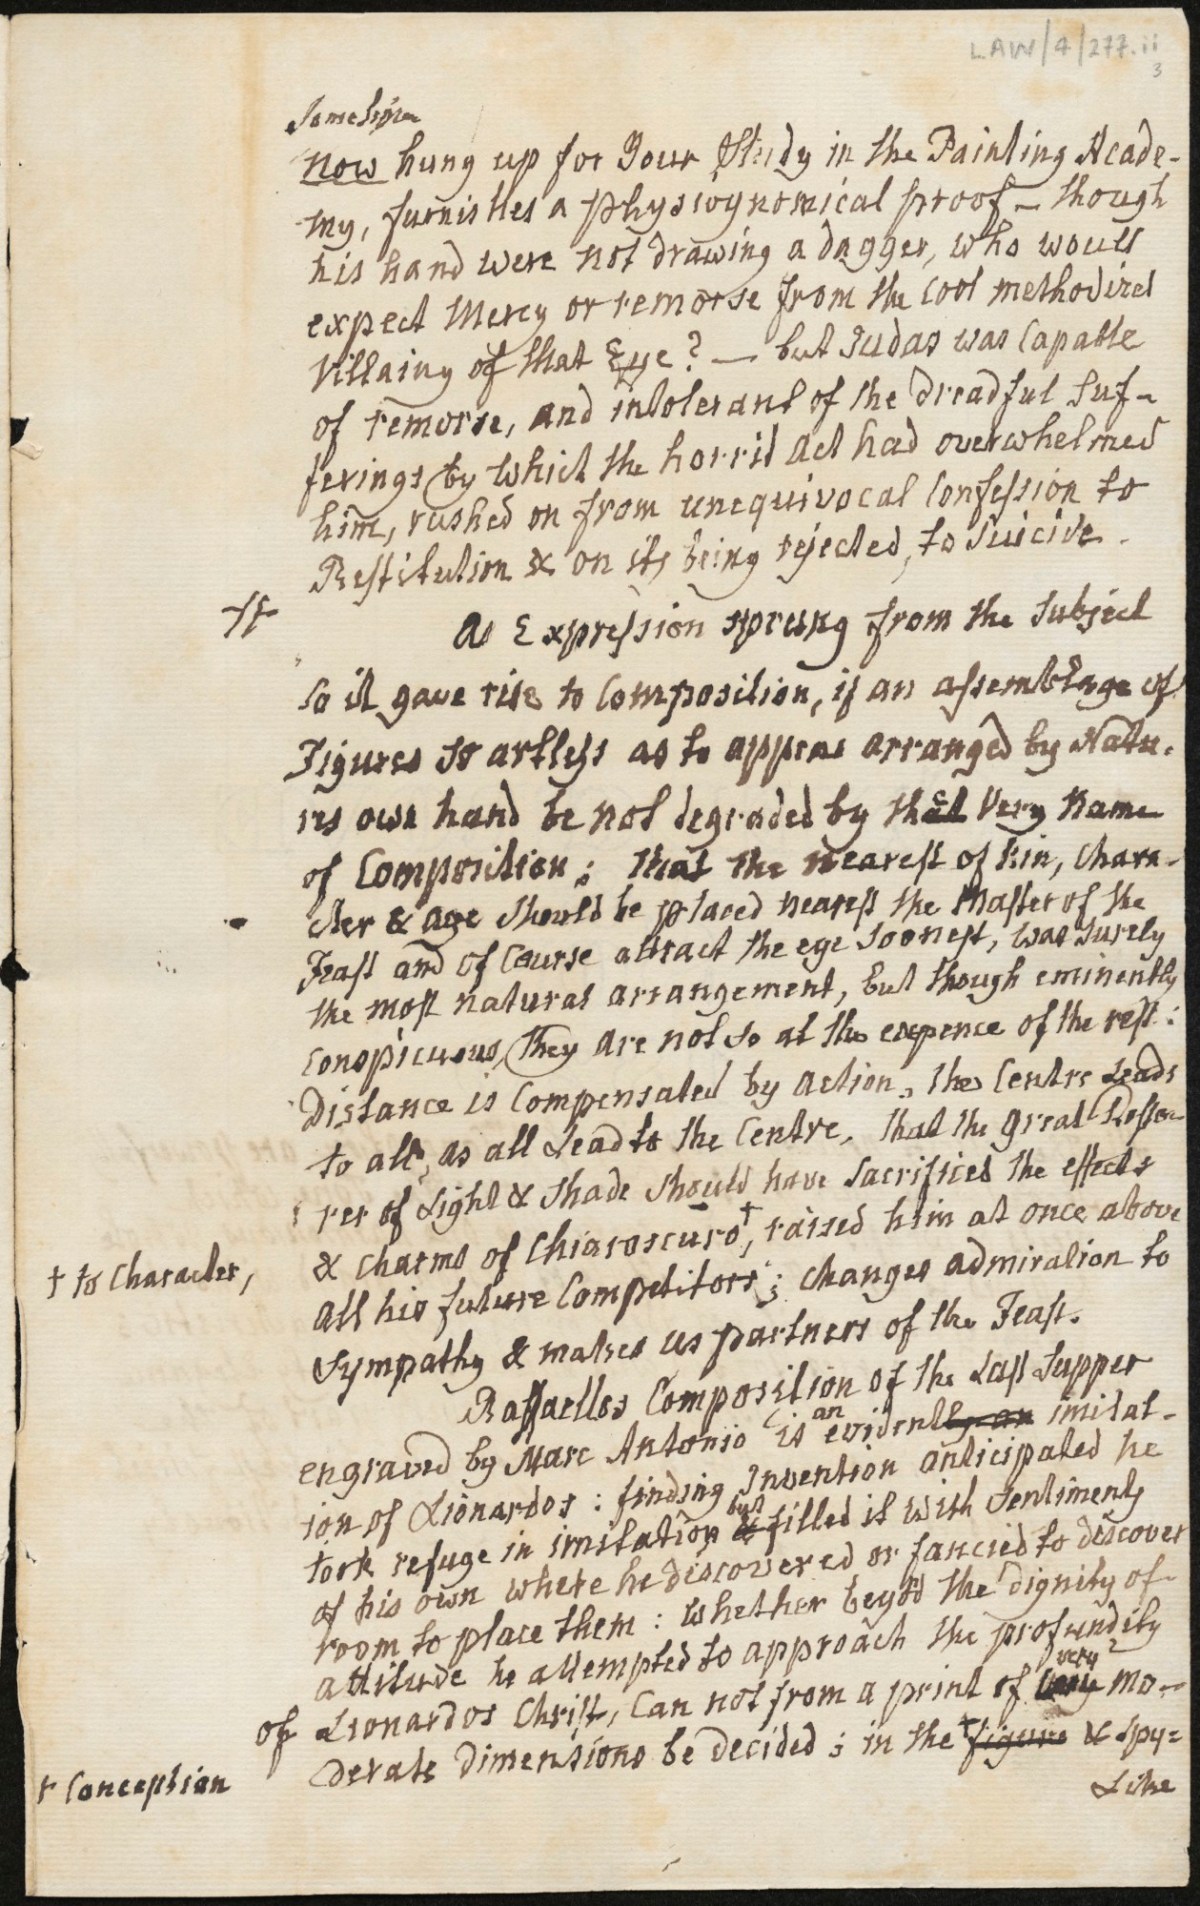 LAW/4/277.ii
3
Sometime
now hung up for Your Study in the Painting Acade-
my, furnishes a physiognomical proof – though
his hand were not drawing a dagger, who would
expect Mercy or remorse from the cool methodized
Villainy of that Eye? — but Judas was Capable
of remorse, and intolerant of the dreadful Suf-
ferings by which the horrid Act had overwhelmed
him, rushed on from unequivocal Confession to
Restitution & on its being rejected, to Suicide.
As Expression sprung from the Subject
so it gave rise to Composition, if an assemblage of
Figures so artless as to appear arranged by Natu-
res own hand be not degraded by the Very name
of Composition; that the nearest of kin, Chara-
cter & age should be placed nearest the Master of the
Feast and of Course attract the eye soonest, was surely
the most natural arrangement, but though eminently
Conspicuous, they are not so at the expence of the rest:
Distance is Compensated by action, the Centre Leads
to all, as all Lead to the Centre, that the great Resto-
rer of Light & shade should have sacrificed the effects
& charms of Chiaroscuro†, raised him at once above
† to Character,
all his future Competitors; changes admiration to
Sympathy & makes us partners of the Feast.
Raffaellos Composition of the Last Supper
engraved by Marc Antonio is an evidently an imitat-
ion of Lionardos: finding Invention anticipated he
took refuge in imitation but & filled it with Sentiments
of his own where he discovered or fancied to discover
room to place them: whether beyo'd the Dignity of
attitude he attempted to approach the profundity
of Lionardos Christ, Can not from a print of very very mo-
derate Dimensions be decided; in the † figure & Spy=
† Conception
Like